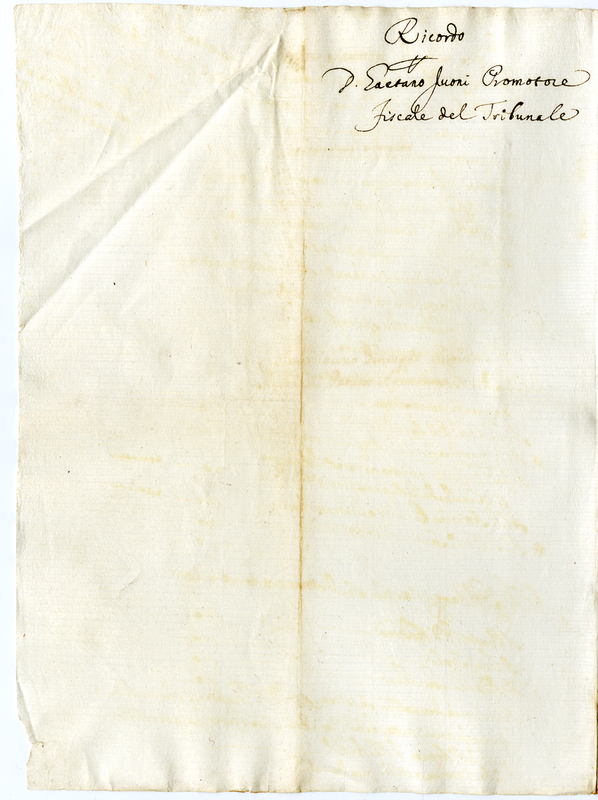 Ricordo
D. Gaetano Juoni Promotore
fiscale del Tribunale